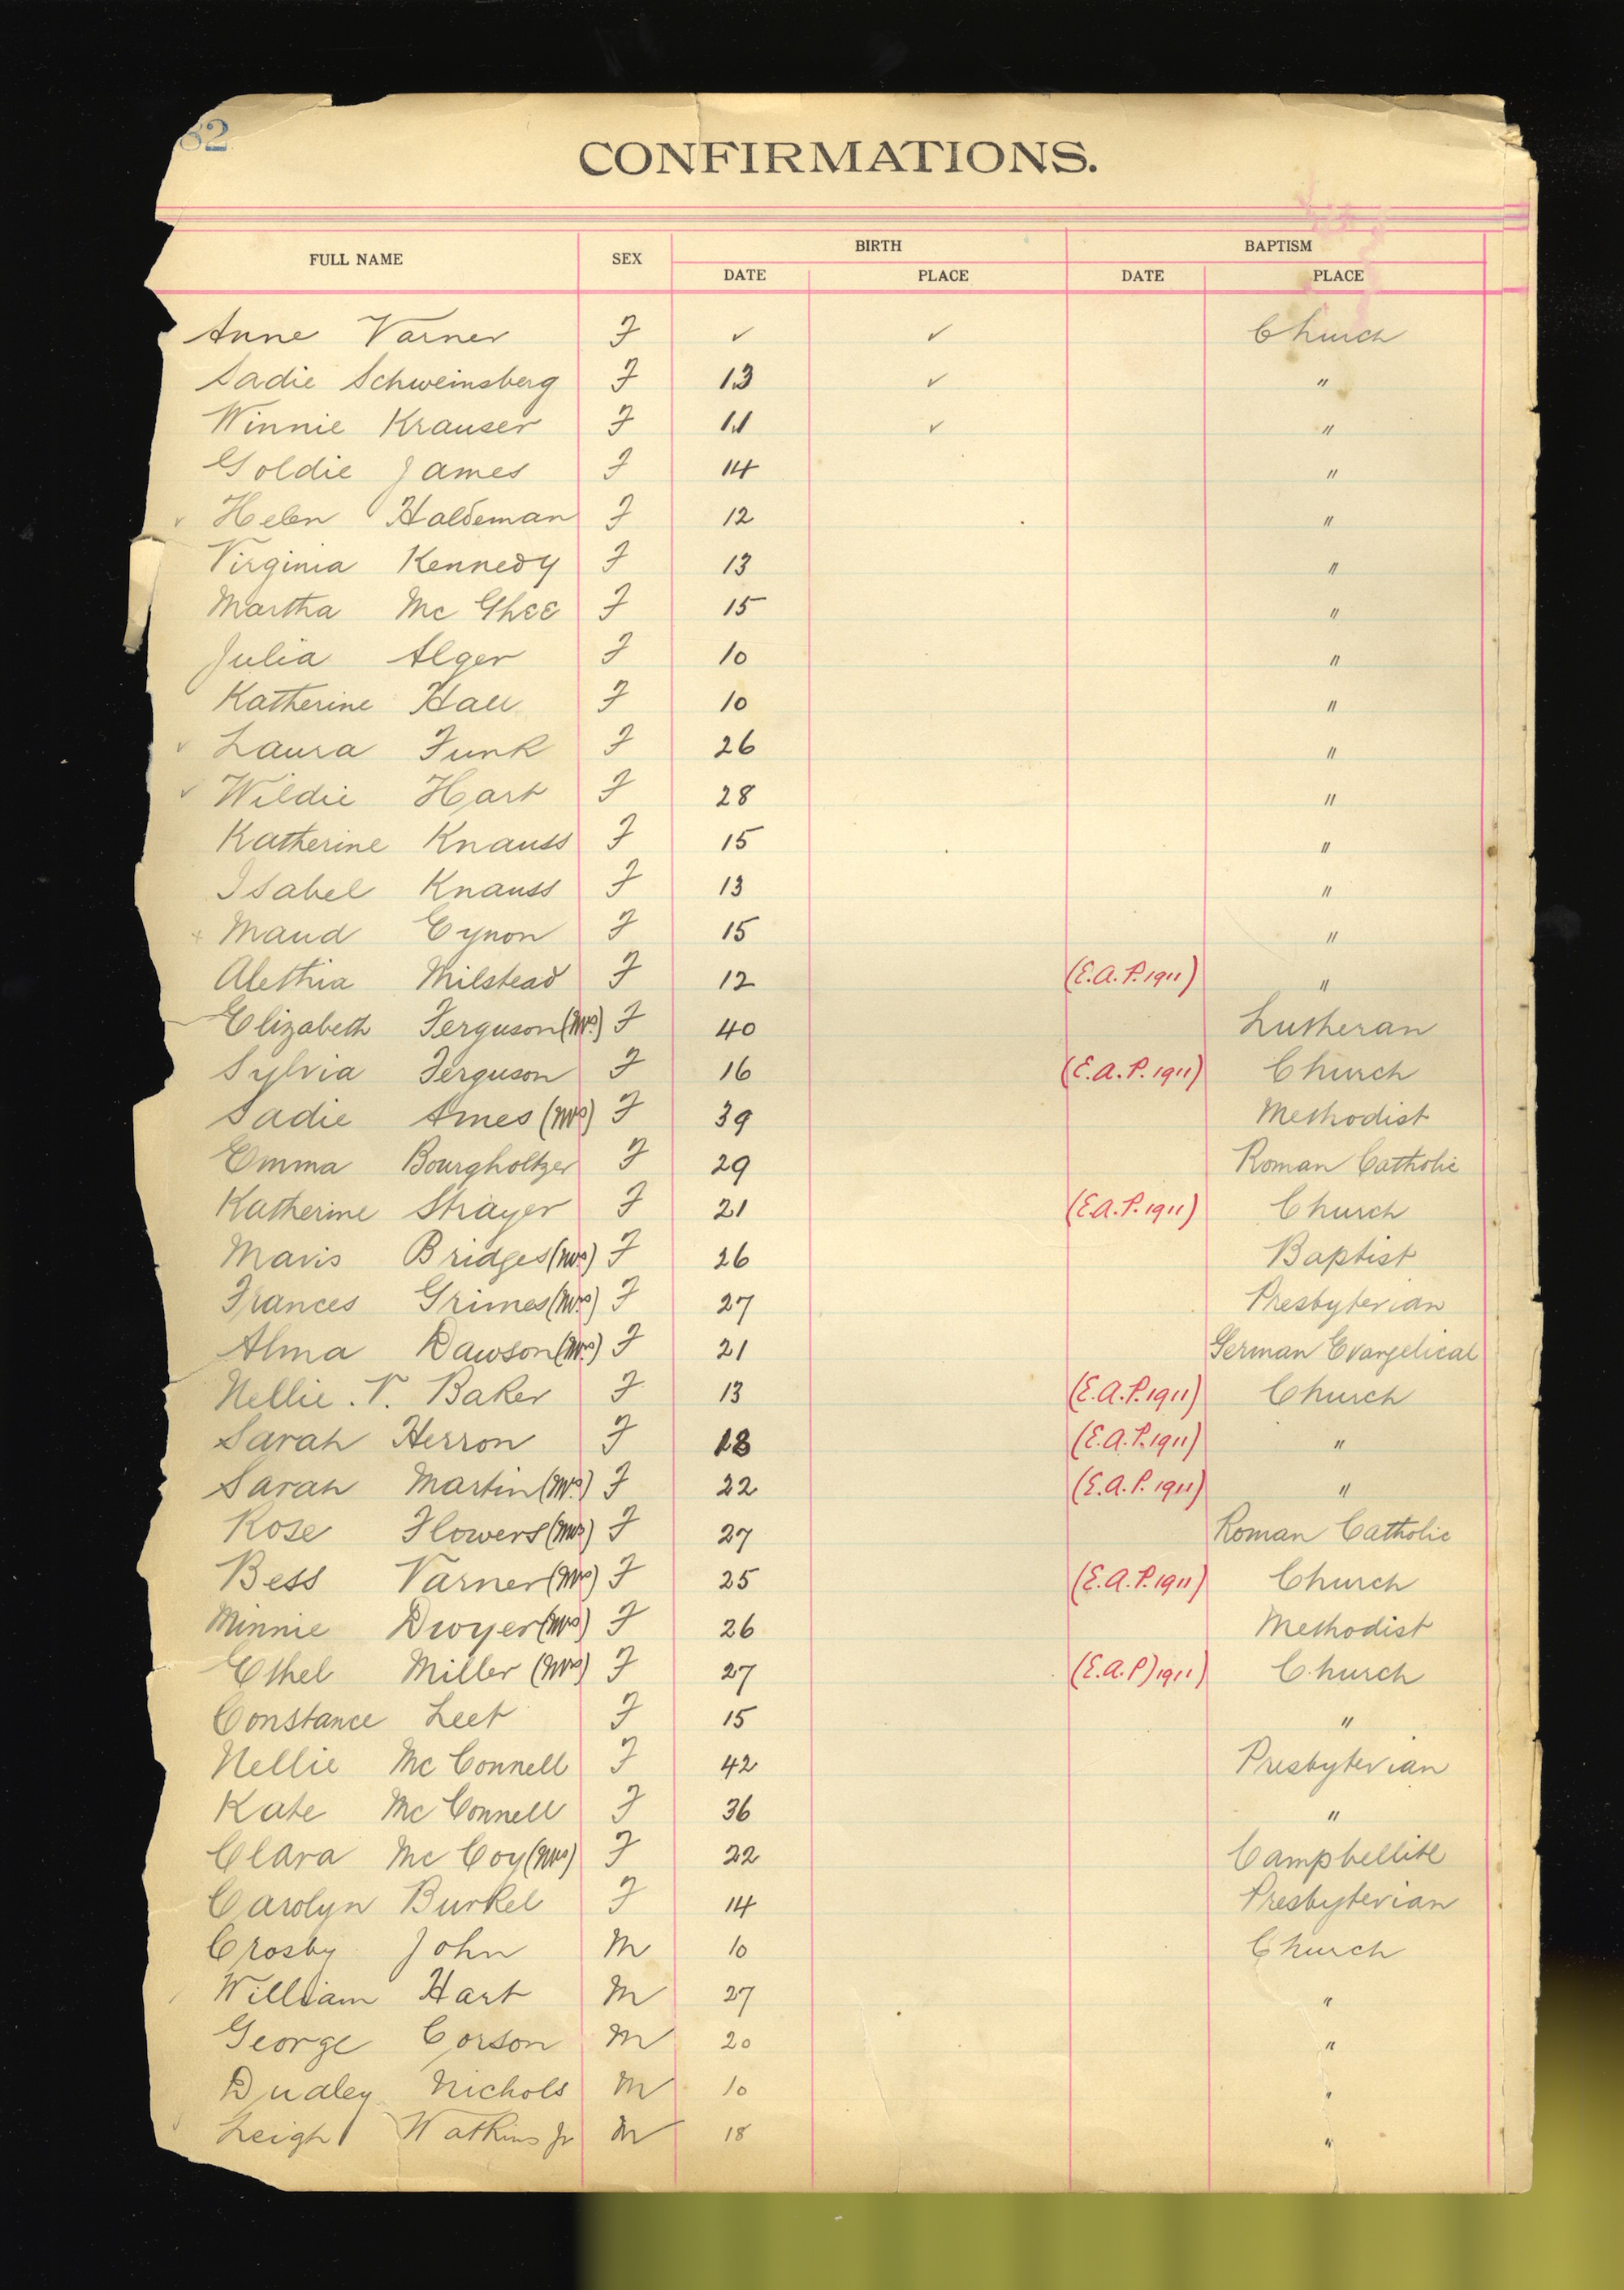 82
CONFIRMATIONS.
FULL NAME SEX BIRTH BAPTISM
DATE PLACE DATE PLACE
Anne Varner F ✓ ✓ Church
Sadie Schweinsberg F 13 ✓ "
Winnie Krauser F 11 ✓ "
Goldie James F 14 "
✓ Helen Haldeman F 12 "
Virginia Kennedy F 13 "
Martha Mc Ghee F 15 "
Julia Alger F 10 "
Katherine Hall F 10 "
✓ Laura Funk F 26 "
✓ Wildie Hart F 28 "
Katherine Knauss F 15 "
Isabel Knauss F 13 "
+ Maud Cynon F 15 "
Alethia Milstead F 12 (E.A.P. 1911) "
Elizabeth Ferguson (Mrs.) F 40 Lutheran
Sylvia Ferguson F 16 (E.A.P. 1911) Church
Sadie Ames (Mrs) F 39 Methodist
Emma Bourgholtzer F 29 Roman Catholic
Katherine Strayer F 21 (E.A.P. 1911) Church
Mavis Bridges (Mrs.) F 26 Baptist
Frances Grimes (Mrs.) F 27 Presbyterian
Alma Dawson (Mrs.) F 21 German Evangelical
Nellie . V. Baker F 13 (E.A.P. 1911) Church
Sarah Herron F 18 (E.A.P. 1911) "
Sarah Martin (Mrs.) F 22 (E.A.P. 1911) "
Rose Flowers (Mrs) F 27 Roman Catholic
Bess Varner (Mrs) F 25 (E.A.P. 1911) Church
Minnie Dwyer (Mrs) F 26 Methodist
Ethel Miller (Mrs) F 27 (E.A.P) 1911) Church
Constance Leet F 15 "
Nellie Mc Connell F 42 Presbyterian
Kate Mc Connell F 36 "
Clara Mc Coy (Mrs) F 22 Campbellite
Carolyn Burkel F 14 Presbyterian
Crosby John M 10 Church
William Hart M 27 "
George Corson M 20 "
Dudley Nichols M 10 "
Leigh Watkins Jr M 18 "